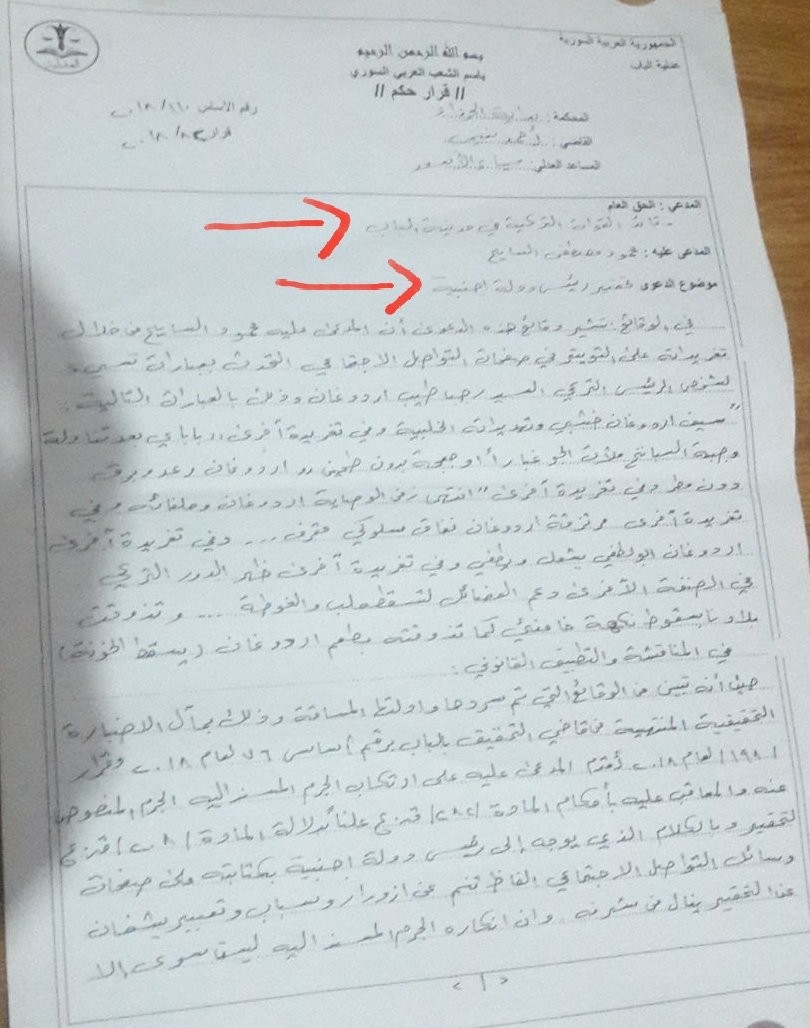 الجمهورية العربية السورية
عدلية الباب
بسم الله الرحمن الرحيم
باسم الشعب العربي السوري
// قرار حكم //
المحكمة : بداية الجزاء
القاضي : أحمد
المساعد العدلي :
رقم الأساس ١١٠ / ٢٠١٨
قرار ٨٢ / ٢٠١٨
المدعي : الحق العام
- قائد القوات التركية في مدينة الباب
المدعى عليه : محمود مصطفى السايح
موضوع الدعوى تحقير رئيس دولة اجنبية
في الوقائع : تشير وقائع هذه الدعوى أن المدعى عليه محمود السايح من خلال
تغريدات على التويتر في صفحات التواصل الاجتماعي التحدث بعبارات تسيء
لشخص الرئيس التركي السيد رجب طيب اردوغان وذلك بالعبارات التالية :
" سيف اردوغان خشبي وتهديدات الخلبية وفي تغريدة أخرى بعد تناوله
وجبة السبانخ ملأت الجو غباراً أو جعجعة بدون طحين اردوغان رعد وبرق
دون مطر وفي تغريدة أخرى " انتهى زمن الوصاية اردوغان وحلفائه وفي
تغريدة أخرى مرتزقة اردوغان نفاق سلوكي مقرف ... وفي تغريدة أخرى
اردوغان ابو لطفي يشعل ويطفي وفي تغريدة أخرى ظهر الدور التركي
في الصفقة الأخرى دعم الفصائل لتسقط حلب والغوطة .... وتذوقت
بلادنا بسقوط نكهة خامنئي كما تذوقته بطعم اردوغان ( يسقط الخونة )
في المناقشة والتطبيق القانوني :
حيث أنه تبين من الوقائع التي تم سردها وادلتها المساقة وذلك بمآل الاضبارة
التحقيقية المنتهية من قاضي التحقيق بالباب برقم اساس ٧٦ لعام ٢٠١٨ وقرار
/ ١٩٨ / لعام ٢٠١٨ أقدم المدعى عليه على ارتكاب الجرم المسند اليه الجرم المنصوص
عنه والمعاقب عليه بأحكام المادة / ٢٨٢ / ق.ع علناً بدلالة المادة / ٢٠٨ / ق.ع
لتحقير وبالكلام الذي يوجه إلى رئيس دولة اجنبية بكتابته على صفحات
وسائل التواصل الاجتماعي الفاظ تنم عن ازورار وسباب وتعبير يشفان
عن التحقير ينال من شرفه . وان انكاره الجرم المسند اليه ليست سوى الا
< ١ >